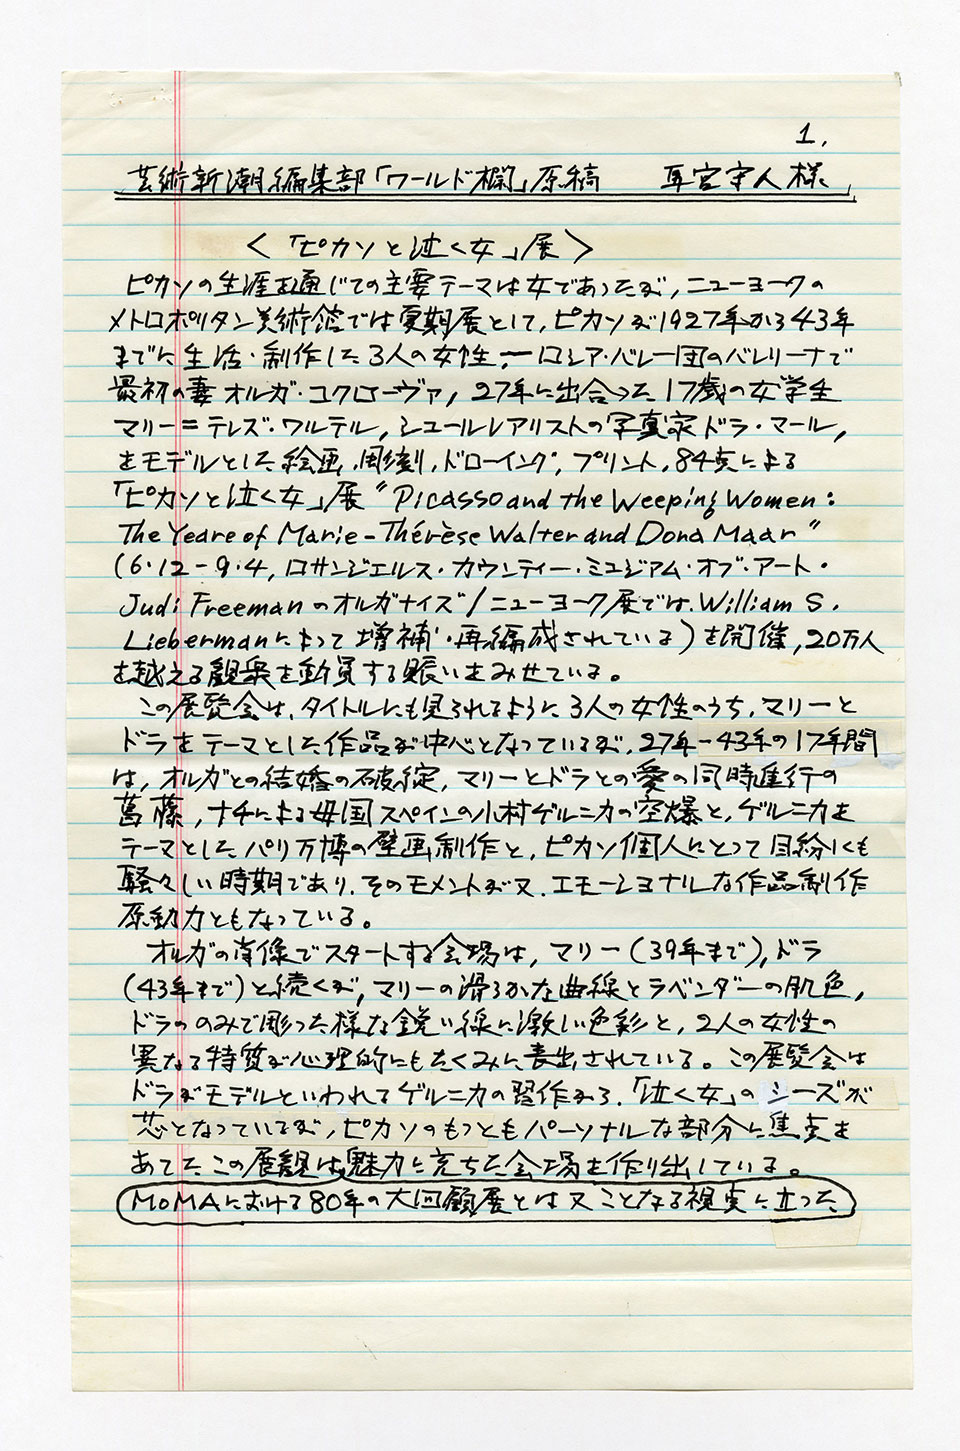 1.
芸術新潮編集部「ワールド欄」原稿 耳宮守人様
<「ピカソと泣く女」展>
ピカソの生涯を通じての主要テーマは女であったが,ニューヨークの
メトロポリタン美術館では夏期展として,ピカソが1927年から43年
までに生活・制作した3人の女性ーロシア・バレー団のバレリーナで
最初の妻オルガ・コクローヴァ,27年に出合った17歳の女学生
マリー=テレズ・ワルテル,シュールレアリストの写真家ドラ・マール,
をモデルとした絵画,彫刻,ドローイング,プリント,84点による
「ピカソと泣く女」展“Picasso and the Weeping Women:
The Yeare of Marie-Thérèse Walter and Dona Maar”
(6・12-9・4,ロサンジェルス・カウンティー・ミュジアム・オブ・アート・
Judi Freemanのオルガナイズ/ニューヨーク展では,William S.
Liebermanによって増補・再編成されている)を開催,20万人
を越える観衆を動員する賑いをみせている。
この展覧会は,タイトルにも見られるように3人の女性のうち,マリーと
ドラをテーマとした作品が中心となっているが,27年-43年の17年間
は,オルガとの結婚の破綻,マリーとドラとの愛の同時進行の
葛藤,ナチによる母国スペインの小村ゲルニカの空爆と,ゲルニカを
テーマとしたパリ万博の壁画制作と,ピカソ個人にとって目紛しくも
騒々しい時期であり,そのモメントが又,エモーショナルな作品制作
原動力ともなっている。
オルガの肖像でスタートする会場は,マリー(39年まで),ドラ
(43年まで)と続くが,マリーの滑らかな曲線とラベンダーの肌色,
ドラののみで彫った様な鋭い線に激しい色彩と,2人の女性の
異なる特質が心理的にもたくみに表出されている。この展覧会は
ドラがモデルといわれてゲルニカの習作から,「泣く女」のシーズが
芯となっているが,ピカソのもっともパーソナルな部分に焦点を
あてたこの展観は魅力に充ちた会場を作り出している。
MoMAにおける80年の大回顧展とは又ことなる視点に立った